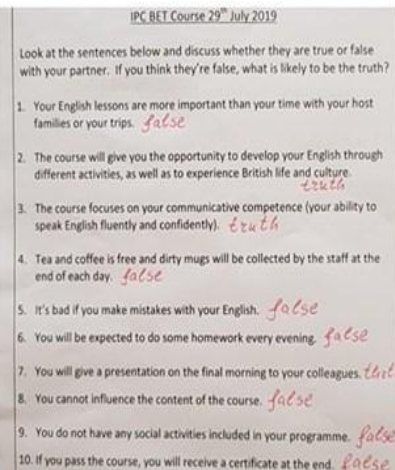 IPC BET Course 29th July 2019
Look at the sentences below and discuss whether they are true or false
with your partner. If you think they're false, what is likely to be the truth?
1. Your English lessons are more important than your time with your host
families or your trips. false
2. The course will give you the opportunity to develop your English through
different activities, as well as to experience British life and culture.
truth
3. The course focuses on your communicative competence (your ability to
speak English fluently and confidently). truth
4. Tea and coffee is free and dirty mugs will be collected by the staff at the
end of each day. false
5. It's bad if you make mistakes with your English. false
6. You will be expected to do some homework every evening. false
7. You will give a presentation on the final morning to your colleagues.
8. You cannot influence the content of the course. false
9. You do not have any social activities included in your programme. false
10. If you pass the course, you will receive a certificate at the end. false